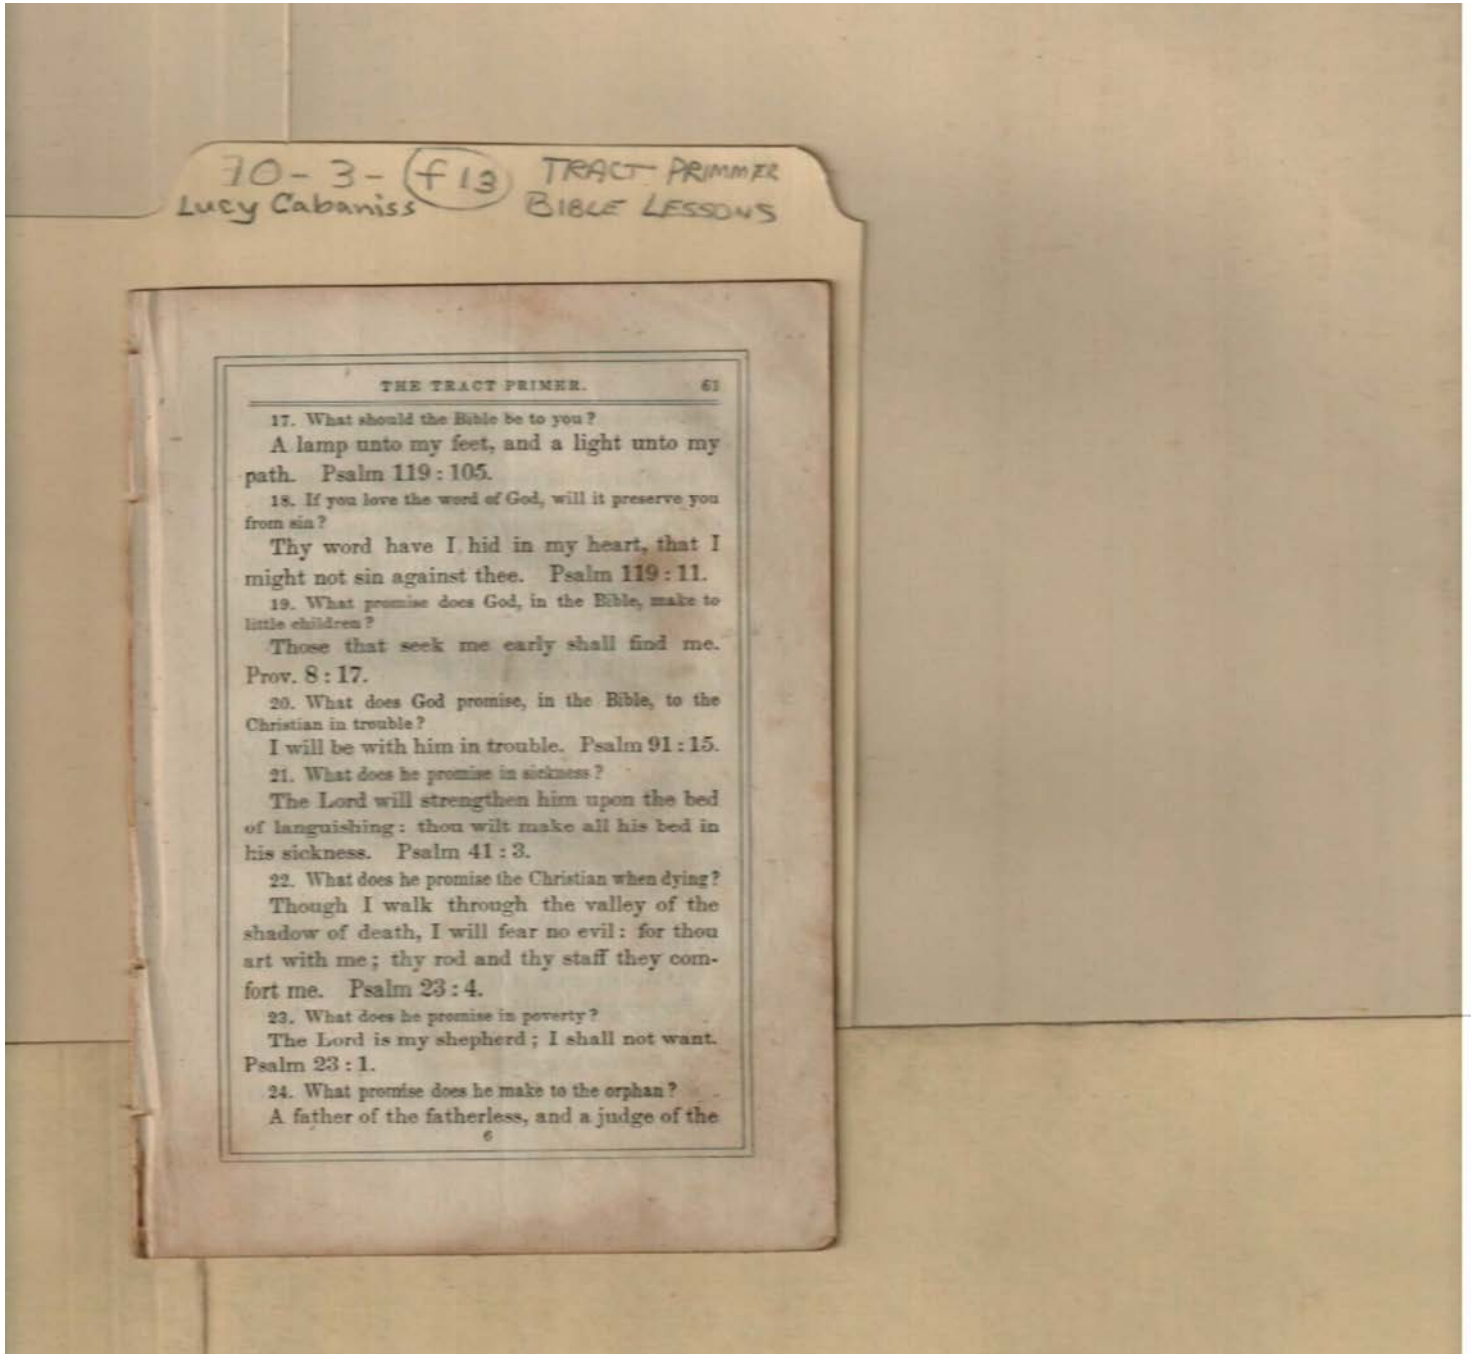 70-3-f13 TRACT PRIMMER
Lucy Cabaniss BIBLE LESSONS
THE TRACT PRIMER. 61
17. What should the Bible be to you?
A lamp unto my feet, and a light unto my
path. Psalm 119:105.
18. If you love the word of God, will it preserve you
from sin?
Thy word have I hid in my heart, that I
might not sin against thee. Psalm 119:11.
19. What promise does God, in the Bible, make to
little children?
Those that seek me early shall find me.
Prov. 8:17.
20. What does God promise, in the Bible, to the
Christian in trouble?
I will be with him in trouble. Psalm 91:15.
21. What does he promise in sickness?
The Lord will strengthen him upon the bed
of languishing: thou wilt make all his bed in
his sickness. Psalm 41:3.
22. What does he promise the Christian when dying?
Though I walk through the valley of the
shadow of death, I will fear no evil: for thou
art with me; thy rod and thy staff they com-
fort me. Psalm 23:4.
23. What does he promise in poverty?
The Lord is my shepherd; I shall not want.
Psalm 23:1.
24. What promise does he make to the orphan?
A father of the fatherless, and a judge of the
6